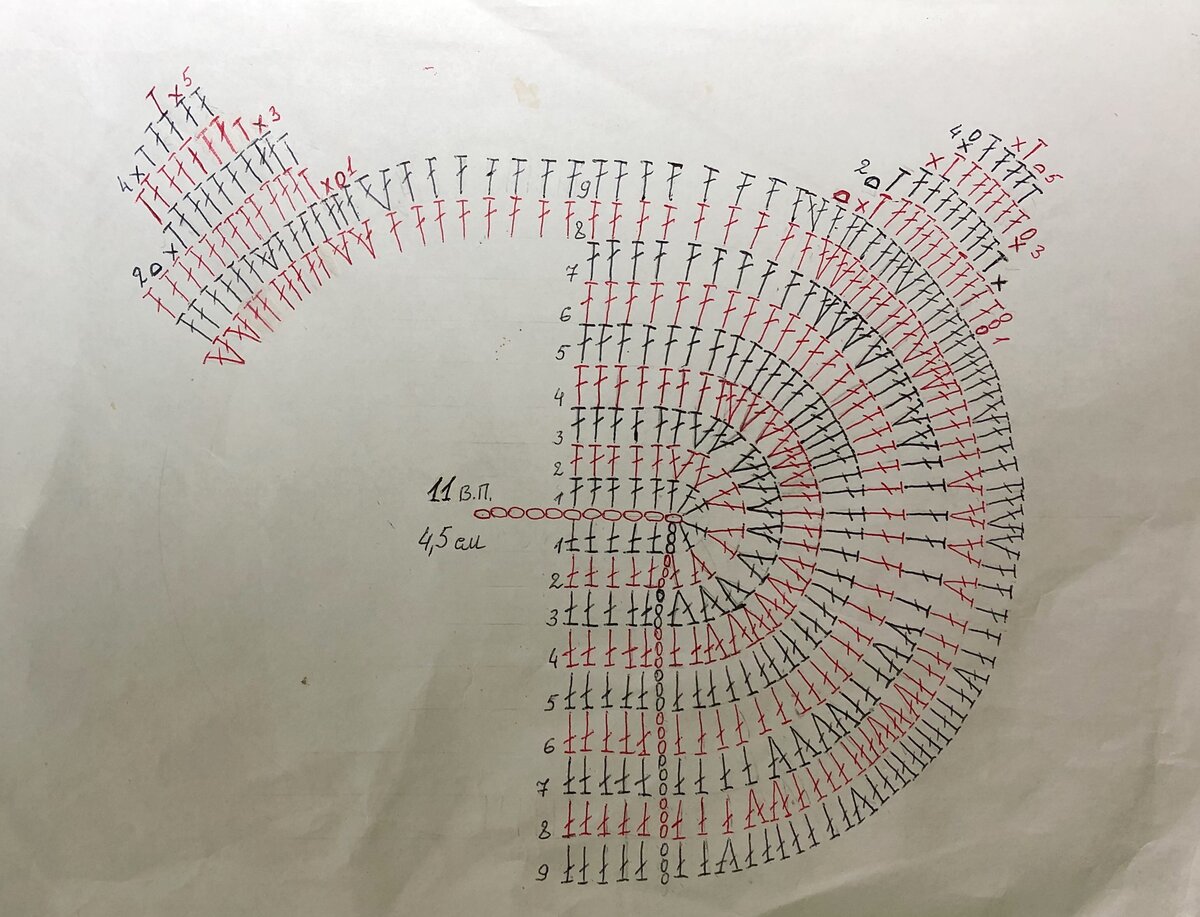 5
3
4
1
2
4
5
2
3
1
9
8
7
6
5
4
3
2
1
11 в.п.
4,5 см
1
2
3
4
5
6
7
8
9